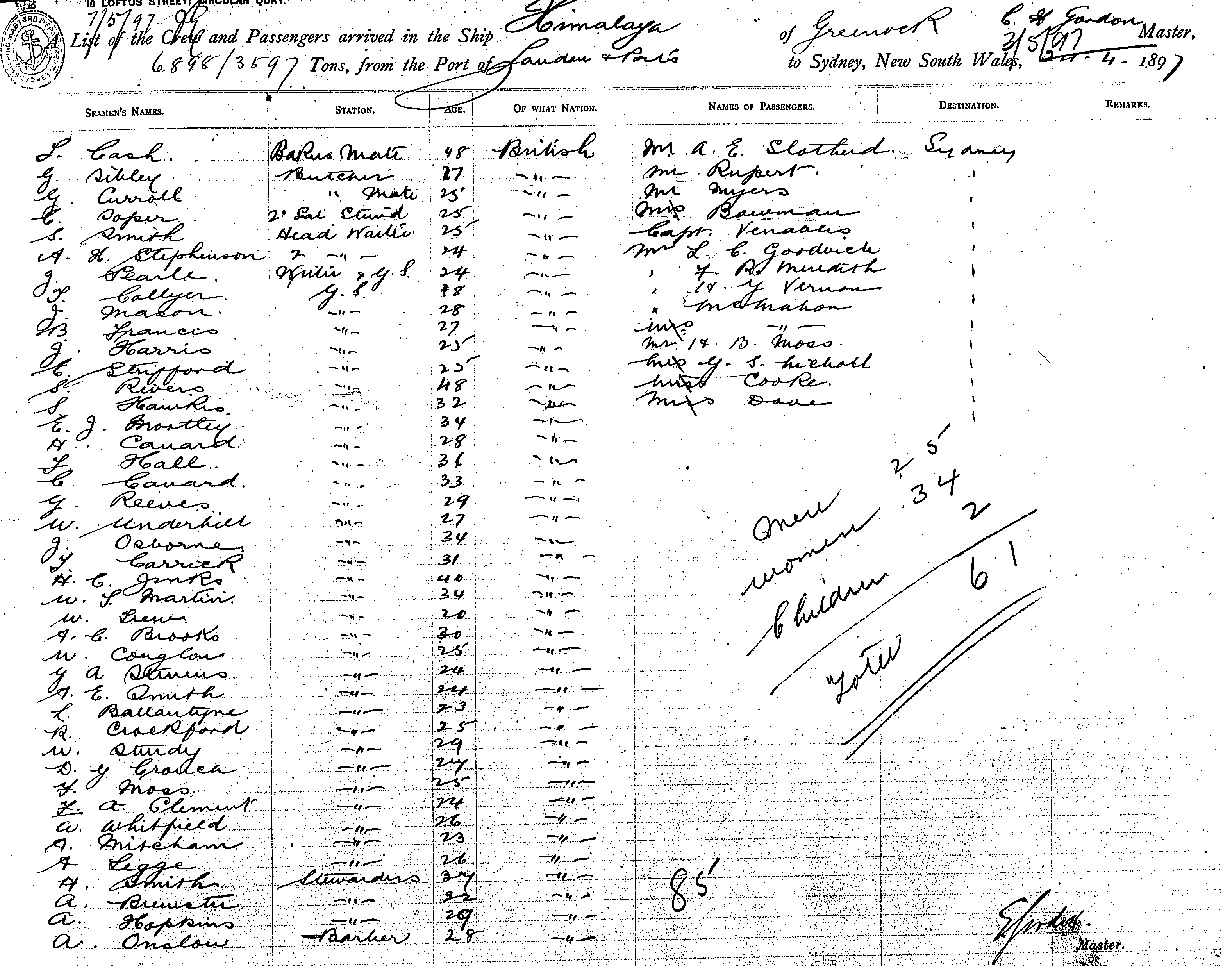 10 LOFTUS STREET, CIRCULAR QUAY.
7/5/97
List of the Crew and Passengers arrived in the Ship Himalaya of Greenock C. H. Gordon Master,
6898/3597 Tons, from the Port of London & Ports to Sydney, New South Wales, 3/5/97 4 - 1897
SEAMEN'S NAMES. STATION. AGE. OF WHAT NATION. NAMES OF PASSENGERS. DESTINATION. REMARKS.
Cash. Bakers Mate 48 British Mr A. E. Sydney
G. Sibley Butcher 27 -"- Mr Rupert.
G. Curroll " Mate 25 -"- Mr Myers
C. Soper 2d Sal Stwd 25 -"- Bowman
S. Smith Head Waiter 25 -"- Capt. Venables
A. H. Stephenson 2 -"- 24 -"- Mr L. C. Goodwich
J. Searle Waiter & G.S. 24 -"- " R. Meredith
Collyer G.S. 18 -"- " Vernon
J. Mason -"- 28 -"- " McMahon
Francis -"- 27 -"- -"-
J. Harris -"- 25 -"- Mr H. B. Moss.
C. Strifford -"- 25 -"- G. S. Nicholl
S. Rivers -"- 48 -"- Miss Cooke.
S. Hawkis -"- 32 -"- Miss Dave
E. J. Mortley -"- 34 -"-
H. Cavard -"- 28 -"-
Hall -"- 36 -"-
C. Cavard. -"- 33 -"-
G. Reeves -"- 29 -"-
W. Underhill -"- 27 -"-
J. Osborne -"- 34 -"-
Carrick -"- 31 -"-
H. C. Jinks -"- 40 -"-
W. Martin. -"- 34 -"-
W. -"- 20 -"-
A. C. Brooks -"- 30 -"-
W. Conglon -"- 25 -"-
G A Stevens -"- 24 -"-
A. E. Smith -"- 24 -"-
L. Ballantyne -"- 23 -"-
R. Crockford -"- 25 -"-
W. Sturdy -"- 29 -"-
D. G Crouch -"- 24 -"-
Moss. -"- 25 -"-
A. Clement -"- 24 -"-
A. Whitfield -"- 26 -"-
A. Mitcham -"- 23 -"-
A Legge -"- 26 -"-
H. Smith Stewardess 37 -"-
A. Brewster -"- 32 -"-
A. Hopkins -"- 29 -"-
A. Onslow Barber 28 -"-
Men 25
women 34
Children 2
Total 61
85
Master.